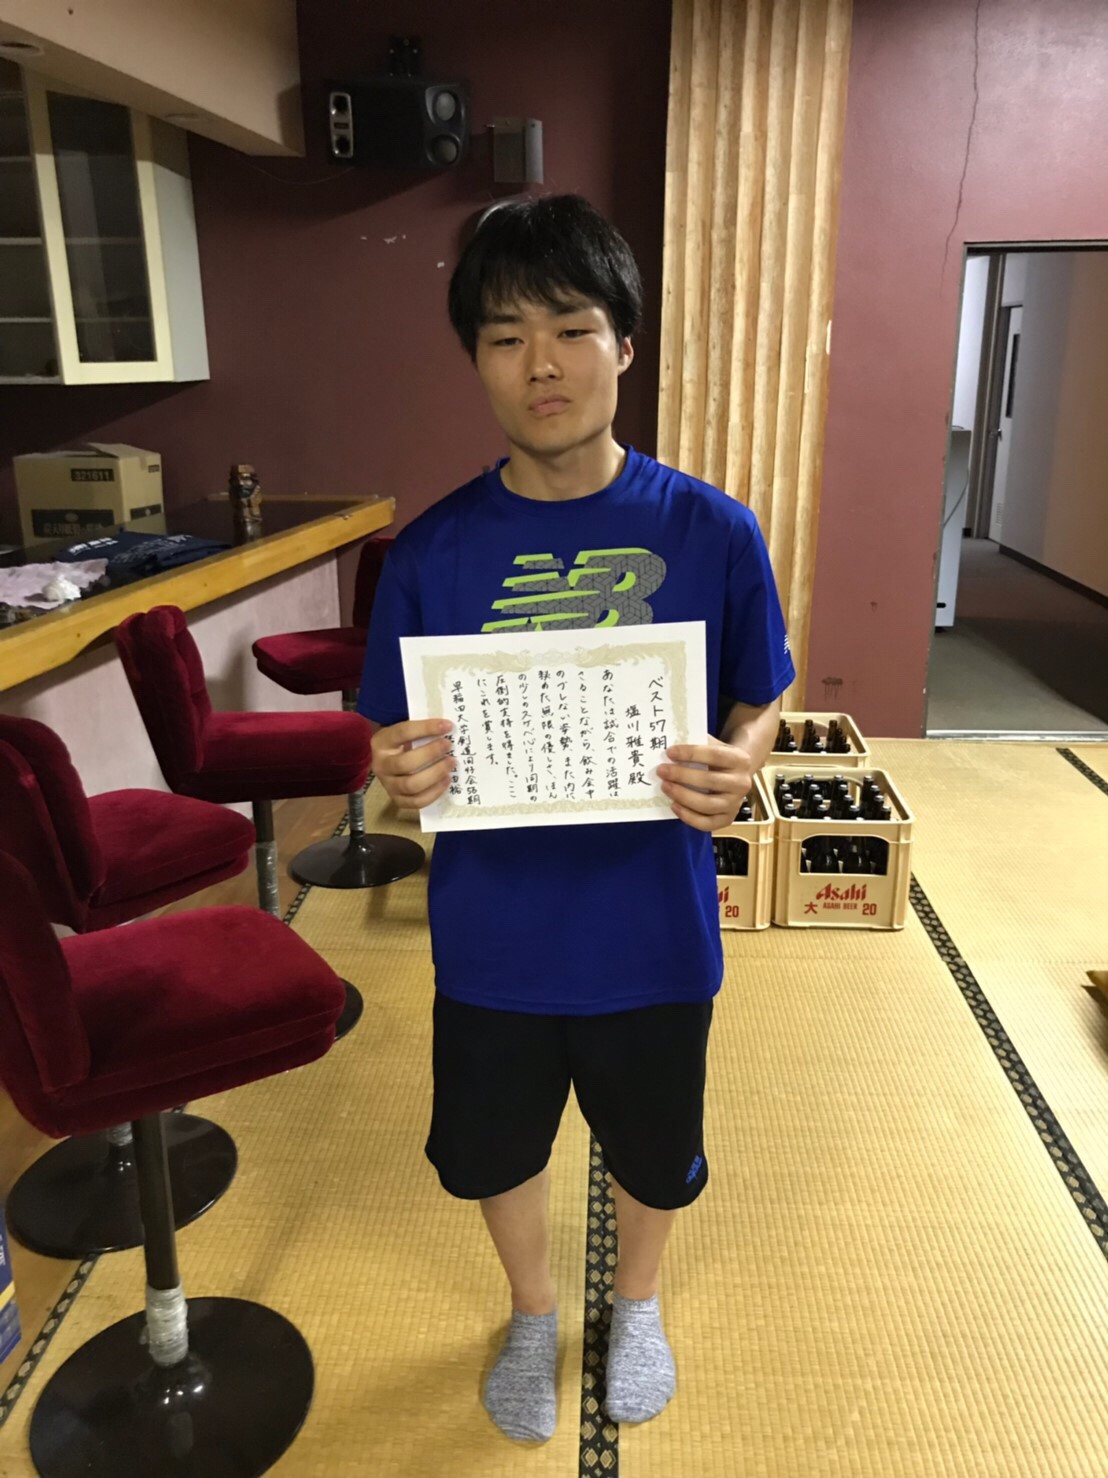 ベスト57期
塩川雅貴 殿
あなたは試合での活躍は
さることながら、飲み会中
のブレない姿勢、また内に
秘めた無限の優しさ、ほん
の少しのスケベ心により同期の
圧倒的支持を得ました。ここ
にこれを賞します。
早稲田大学剣道同好会56期
321011
Asahi
ASAHI BEER
大
20
20